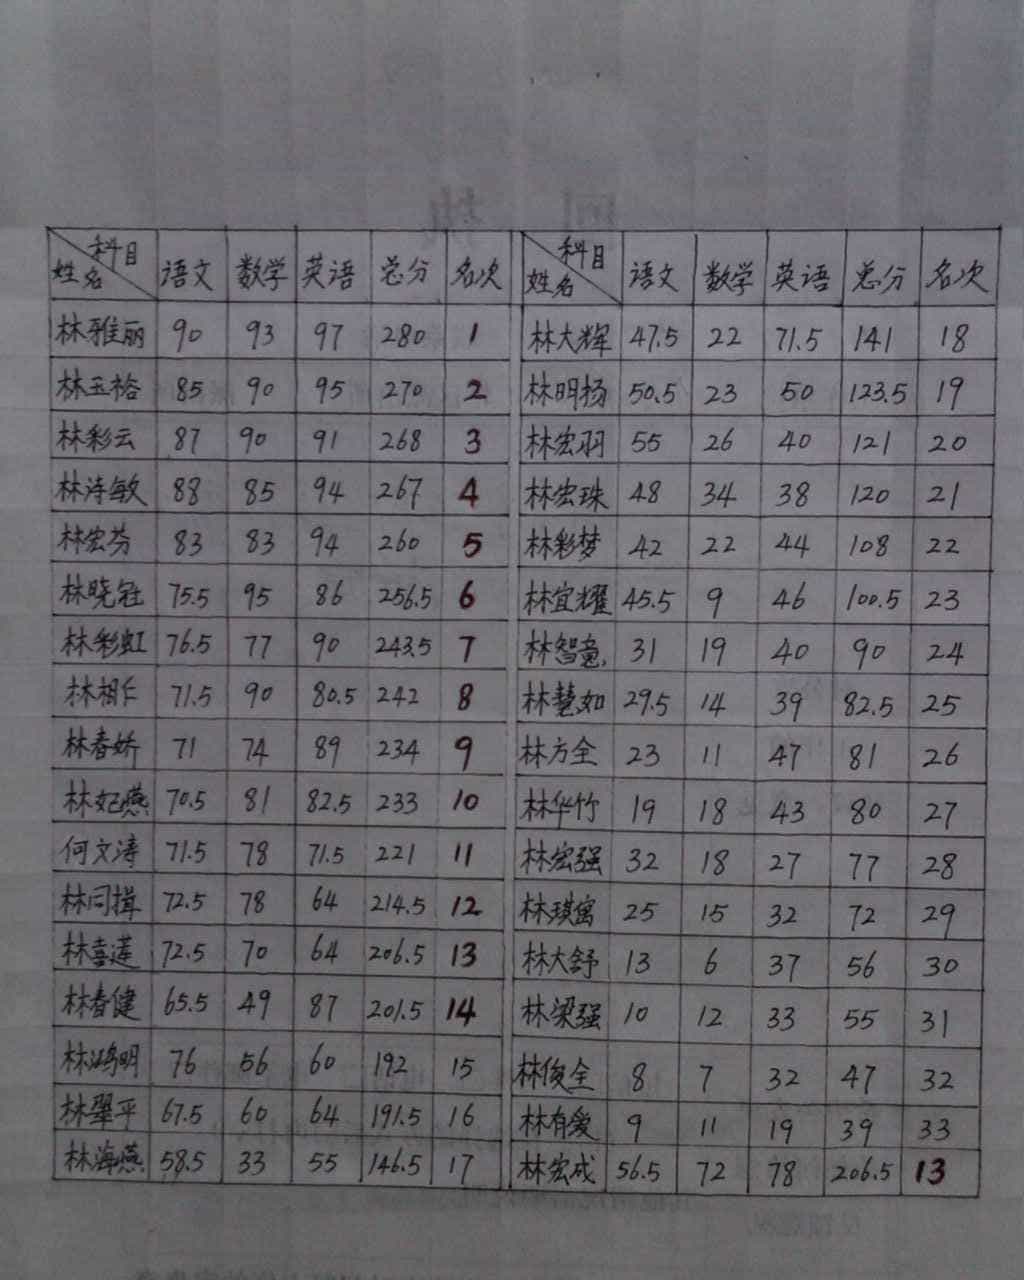 科目 姓名 语文 数学 英语 总分 名次 科目 姓名 语文 数学 英语 总分 名次
林雅丽 90 93 97 280 1 林大辉 47.5 22 71.5 141 18
林玉裕 85 90 95 270 2 林明杨 50.5 23 50 123.5 19
林彩云 87 90 91 268 3 林宏羽 55 26 40 121 20
林诗敏 88 85 94 267 4 林宏珠 48 34 38 120 21
林宏芬 83 83 94 260 5 林彩梦 42 22 44 108 22
林晓钰 75.5 95 86 256.5 6 林宜耀 45.5 9 46 100.5 23
林彩虹 76.5 77 90 243.5 7 林智 31 19 40 90 24
林相仁 71.5 90 80.5 242 8 林慧如 29.5 14 39 82.5 25
林春娇 71 74 89 234 9 林方全 23 11 47 81 26
林妃燕 70.5 81 82.5 233 10 林华竹 19 18 43 80 27
何文涛 71.5 78 71.5 221 11 林宏强 32 18 27 77 28
林同揖 72.5 78 64 214.5 12 林琪 25 15 32 72 29
林喜莲 72.5 70 64 206.5 13 林大舒 13 6 37 56 30
林春健 65.5 49 87 201.5 14 林梁强 10 12 33 55 31
林鸿明 76 56 60 192 15 林俊全 8 7 32 47 32
林翠平 67.5 60 64 191.5 16 林有爱 9 11 19 39 33
林海燕 58.5 33 55 146.5 17 林宏成 56.5 72 78 206.5 13